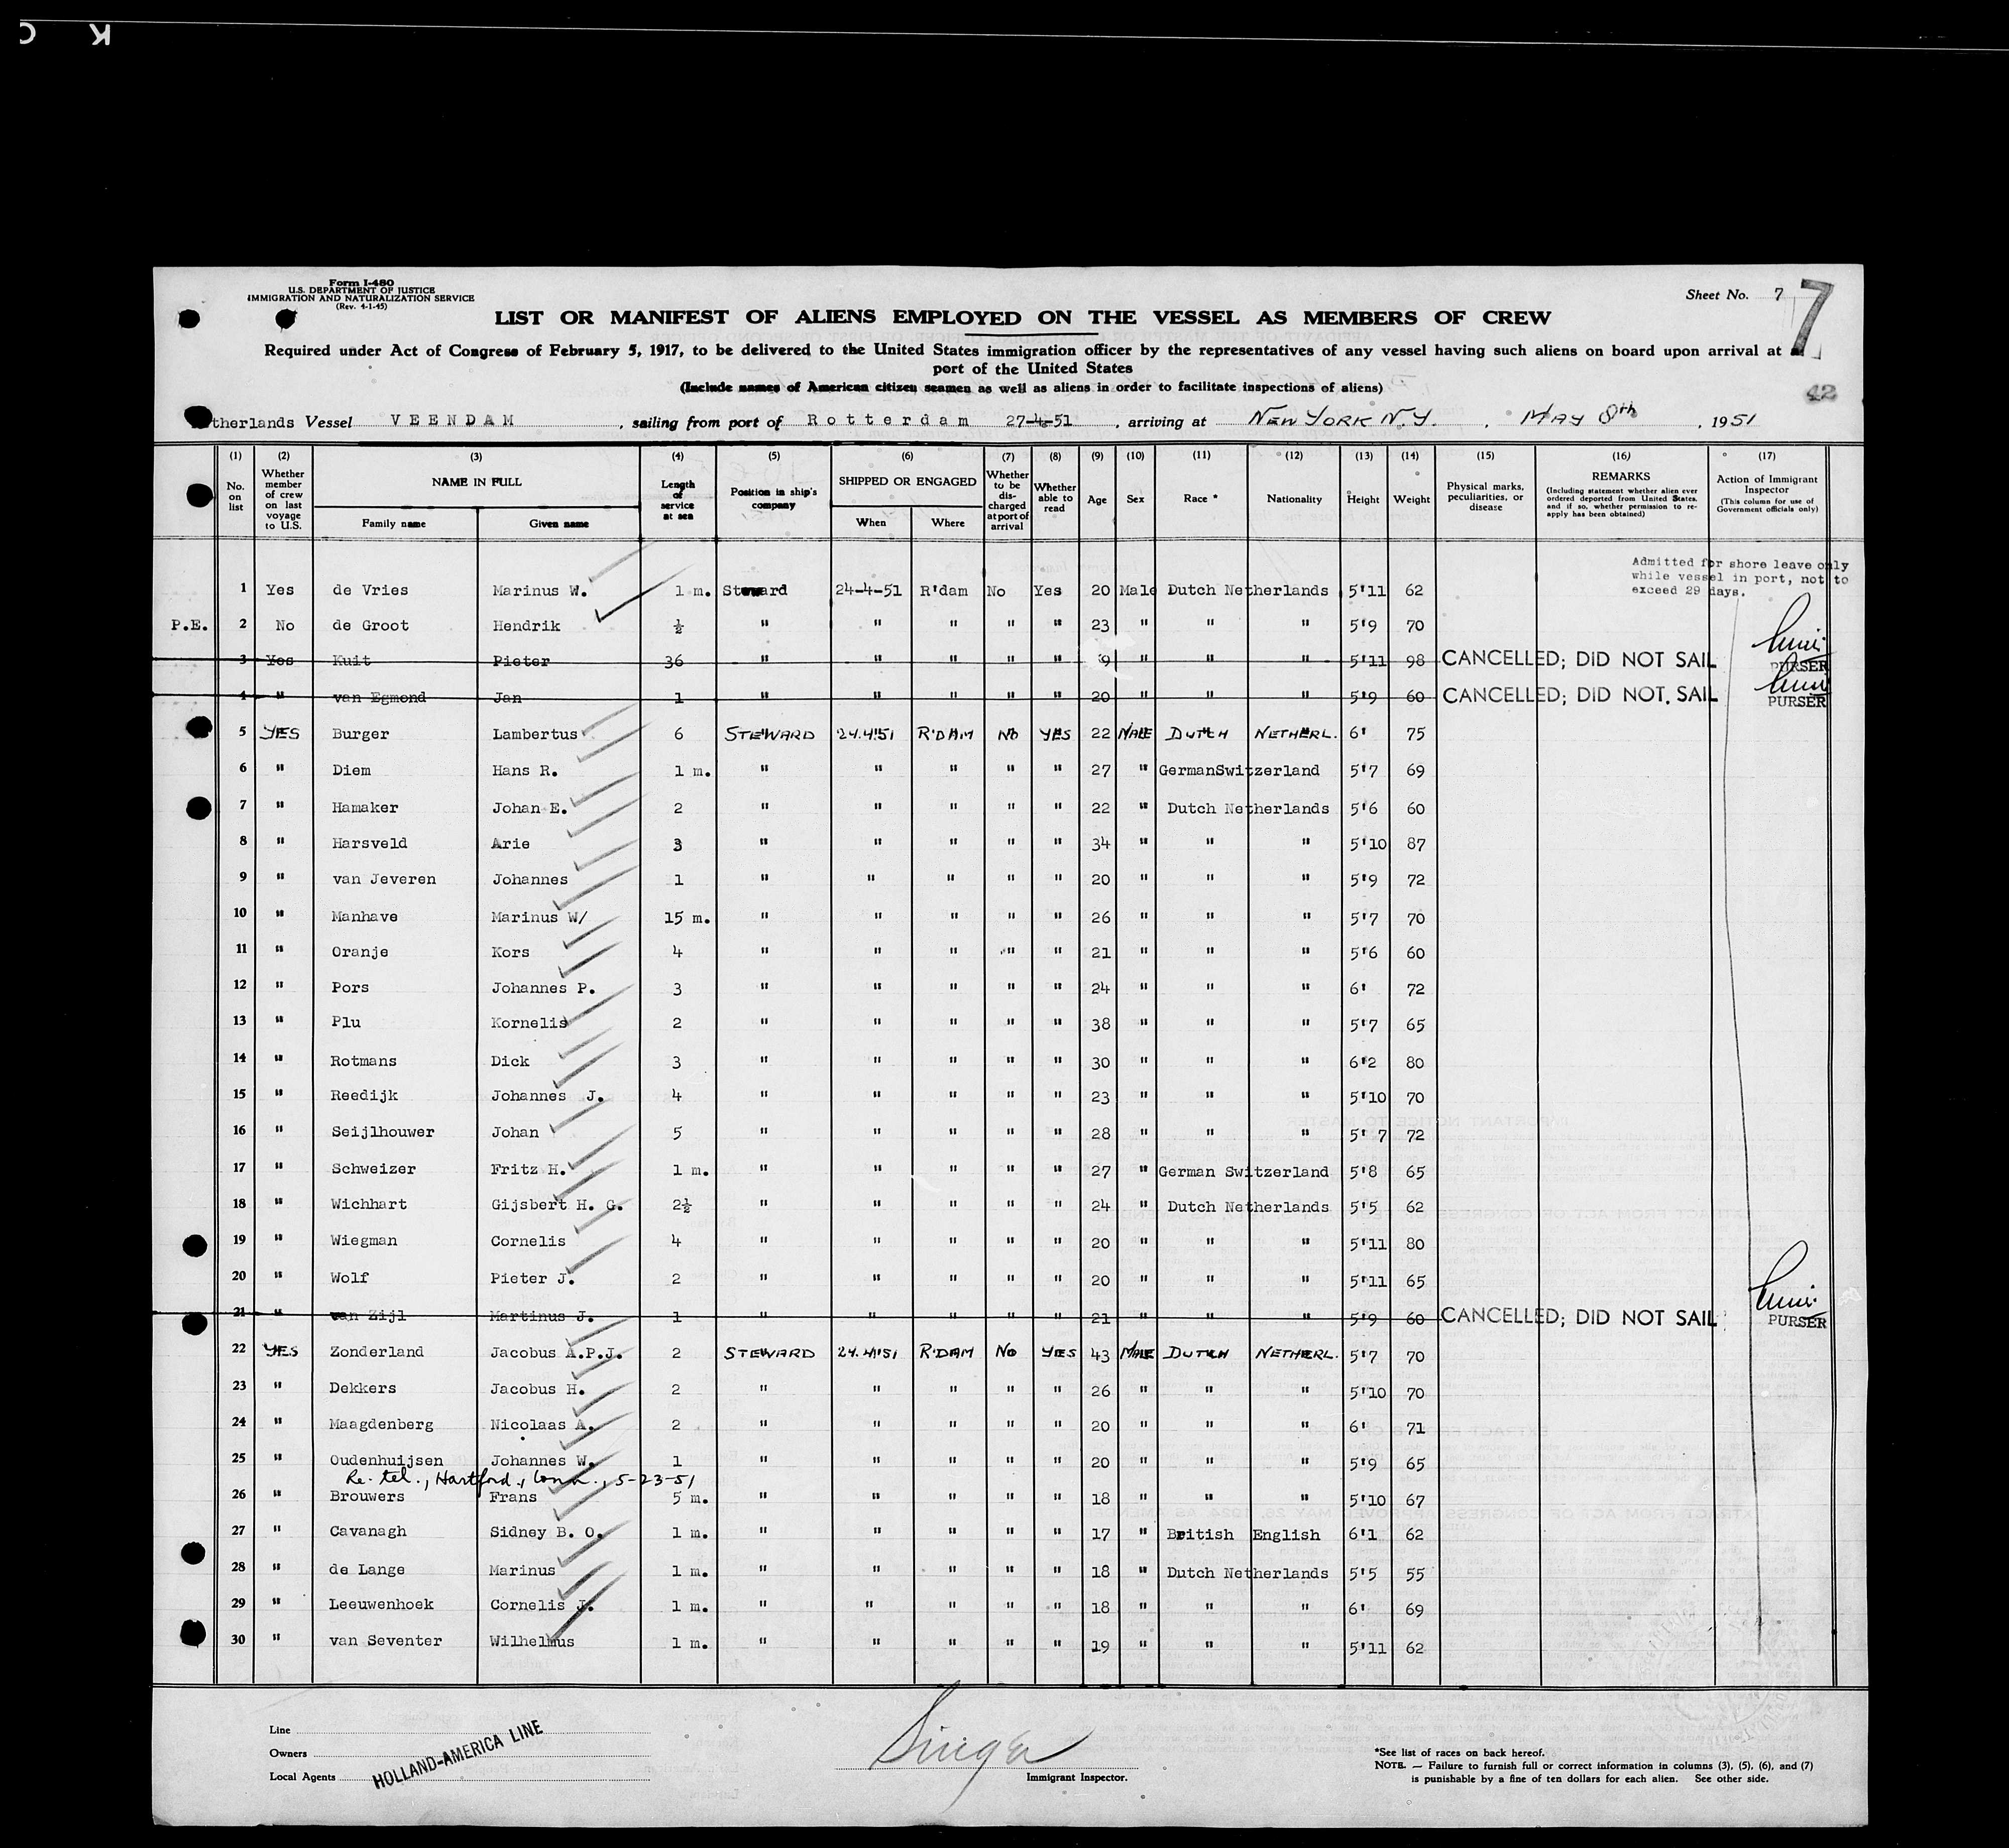 K
C
Form I-480
U.S. DEPARTMENT OF JUSTICE
IMMIGRATION AND NATURALIZATION SERVICE
(Rev. 4-1-45)
Sheet No. 7
7
LIST OR MANIFEST OF ALIENS EMPLOYED ON THE VESSEL AS MEMBERS OF CREW
Required under Act of Congress of February 5, 1917, to be delivered to the United States immigration officer by the representatives of any vessel having such aliens on board upon arrival at a
port of the United States
(Include names of American citizen seamen as well as aliens in order to facilitate inspections of aliens)
42
therlands Vessel VEENDAM , sailing from port of Rotterdam 27-4-51 , arriving at NEW YORK N.Y. , MAY 8th , 1951
(1) (2) (3) (4) (5) (6) (7) (8) (9) (10) (11) (12) (13) (14) (15) (16) (17)
No. on list Whether member of crew on last voyage to U.S. NAME IN FULL Family name Given name Length of service at sea Position in ship's company SHIPPED OR ENGAGED When Where Whether to be discharged at port of arrival Whether able to read Age Sex Race * Nationality Height Weight Physical marks, peculiarities, or disease REMARKS (Including statement whether alien ever ordered deported from United States, and if so, whether permission to reapply has been obtained) Action of Immigrant Inspector (This column for use of Government officials only)
Admitted for shore leave only
while vessel in port, not to
exceed 29 days.
1 Yes de Vries Marinus W. 1 m. Steward 24-4-51 R'dam No Yes 20 Male Dutch Netherlands 5'11 62
P.E. 2 No de Groot Hendrik ½ " " " " " 23 " " " 5'9 70
3 Yes Kuit Pieter 36 " " " " " 9 " " " 5'11 98 CANCELLED; DID NOT SAIL PURSER
4 " van Egmond Jan 1 " " " " " 20 " " " 5'9 60 CANCELLED; DID NOT SAIL PURSER
5 YES Burger Lambertus 6 STEWARD 24.4'51 R'DAM NO YES 22 MALE DUTCH NETHERL. 6' 75
6 " Diem Hans R. 1 m. " " " " " 27 " German Switzerland 5'7 69
7 " Hamaker Johan E. 2 " " " " " 22 " Dutch Netherlands 5'6 60
8 " Harsveld Arie 3 " " " " " 34 " " " 5'10 87
9 " van Jeveren Johannes 1 " " " " " 20 " " " 5'9 72
10 " Manhave Marinus W/ 15 m. " " " " " 26 " " " 5'7 70
11 " Oranje Kors 4 " " " " " 21 " " " 5'6 60
12 " Pors Johannes P. 3 " " " " " 24 " " " 6' 72
13 " Plu Kornelis 2 " " " " " 38 " " " 5'7 65
14 " Rotmans Dick 3 " " " " " 30 " " " 6'2 80
15 " Reedijk Johannes J. 4 " " " " " 23 " " " 5'10 70
16 " Seijlhouwer Johan 5 " " " " " 28 " " " 5' 7 72
17 " Schweizer Fritz H. 1 m. " " " " " 27 " German Switzerland 5'8 65
18 " Wichhart Gijsbert H. G. 2½ " " " " " 24 " Dutch Netherlands 5'5 62
19 " Wiegman Cornelis 4 " " " " " 20 " " " 5'11 80
20 " Wolf Pieter J. 2 " " " " " 20 " " " 5'11 65
21 " van Zijl Martinus J. 1 " " " " " 21 " " " 5'9 60 CANCELLED; DID NOT SAIL PURSER
22 YES Zonderland Jacobus A.P.J. 2 STEWARD 24.4'51 R'DAM NO YES 43 MALE DUTCH NETHERL. 5'7 70
23 " Dekkers Jacobus H. 2 " " " " " 26 " " " 5'10 70
24 " Maagdenberg Nicolaas A. 2 " " " " " 20 " " " 6' 71
25 " Oudenhuijsen Johannes W. 1 " " " " " 20 " " " 5'9 65
Re. tel., Hartford, Conn., 5-23-51
26 " Brouwers Frans 5 m. " " " " " 18 " " " 5'10 67
27 " Cavanagh Sidney B. O. 1 m. " " " " " 17 " British English 6'1 62
28 " de Lange Marinus 1 m. " " " " " 18 " Dutch Netherlands 5'5 55
29 " Leeuwenhoek Cornelis J. 1 m. " " " " " 18 " " " 6' 69
30 " van Seventer Wilhelmus 1 m. " " " " " 19 " " " 5'11 62
Line
Owners
Local Agents
HOLLAND-AMERICA LINE
Immigrant Inspector.
*See list of races on back hereof.
NOTE. — Failure to furnish full or correct information in columns (3), (5), (6), and (7)
is punishable by a fine of ten dollars for each alien. See other side.